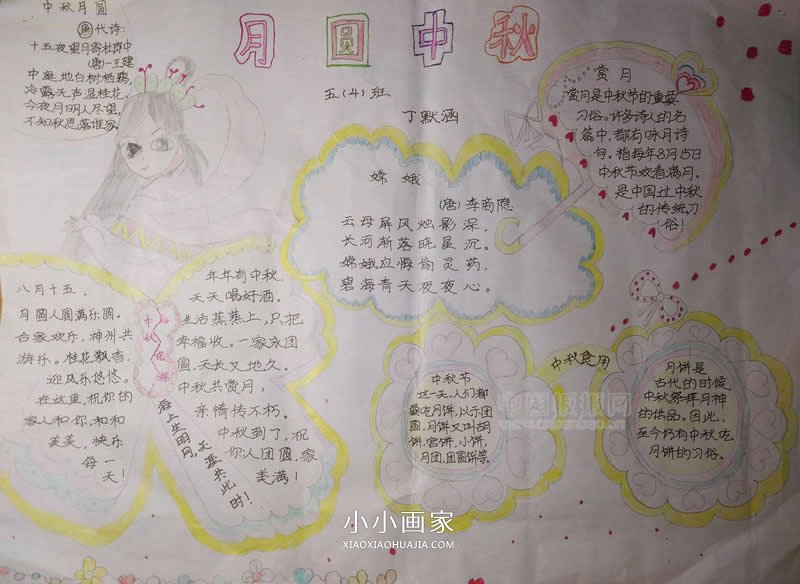 月圆中秋
五(4)班
丁默涵
中秋月圆
唐代诗:
十五夜望月寄杜郎中
(唐)—王建
中庭地白树栖鸦,
冷露无声湿桂花。
今夜月明人尽望,
不知秋思落谁家。
嫦娥
(唐)李商隐
云母屏风烛影深,
长河渐落晓星沉。
嫦娥应悔偷灵药,
碧海青天夜夜心。
赏月
赏月是中秋节的重要
习俗。许多诗人的名
篇中,都有咏月诗
句。指每年8月15日
中秋节欢看满月。
是中国过中秋
的传统习
俗!
八月十五,
月圆人圆满乐圆。
合家欢乐,神州共
游乐。桂花飘香,
迎风乐悠悠。
在这里,祝你的
家人和你,和和
美美,快乐
每一
天!
年年有中秋,
天天喝好酒。
生活蒸蒸上,只把
幸福收。一家永团
圆,天长又地久。
中秋共赏月,
亲情传不朽。
中秋到了,祝
你人团圆,家
美满!
海上生明月,天涯共此时!
中秋食用
中秋节
这一天,人们都
要吃月饼,以示团
圆,月饼又叫胡
饼,宫饼,小饼,
月团,团圆饼等。
月饼是
古代的时候
中秋祭拜月神
的供品。因此,
至今仍有中秋吃
月饼的习俗。
小小画家
XIAOXIAOHUAJIA.COM